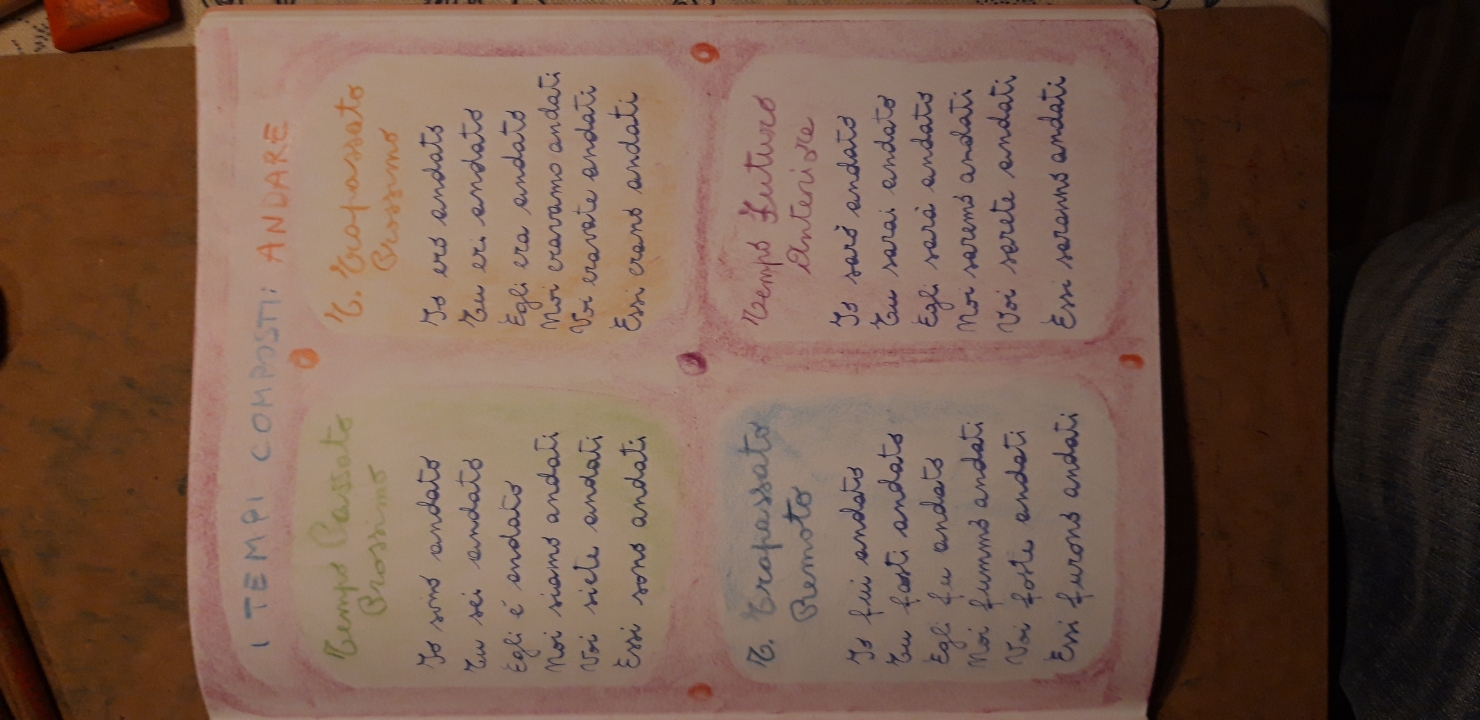 I TEMPI COMPOSTI: ANDARE
Tempo Passato
Prossimo
Io sono andato
Tu sei andato
Egli é andato
Noi siamo andati
Voi siete andati
Essi sono andati
T. Trapassato
Prossimo
Io ero andato
Tu eri andato
Egli era andato
Noi eravamo andati
Voi eravate andati
Essi erano andati
T. Trapassato
Remoto
Io fui andato
Tu fosti andato
Egli fu andato
Noi fummo andati
Voi foste andati
Essi furono andati
Tempo Futuro
Anteriore
Io sarò andato
Tu sarai andato
Egli sarà andato
Noi saremo andati
Voi sarete andati
Essi saranno andati